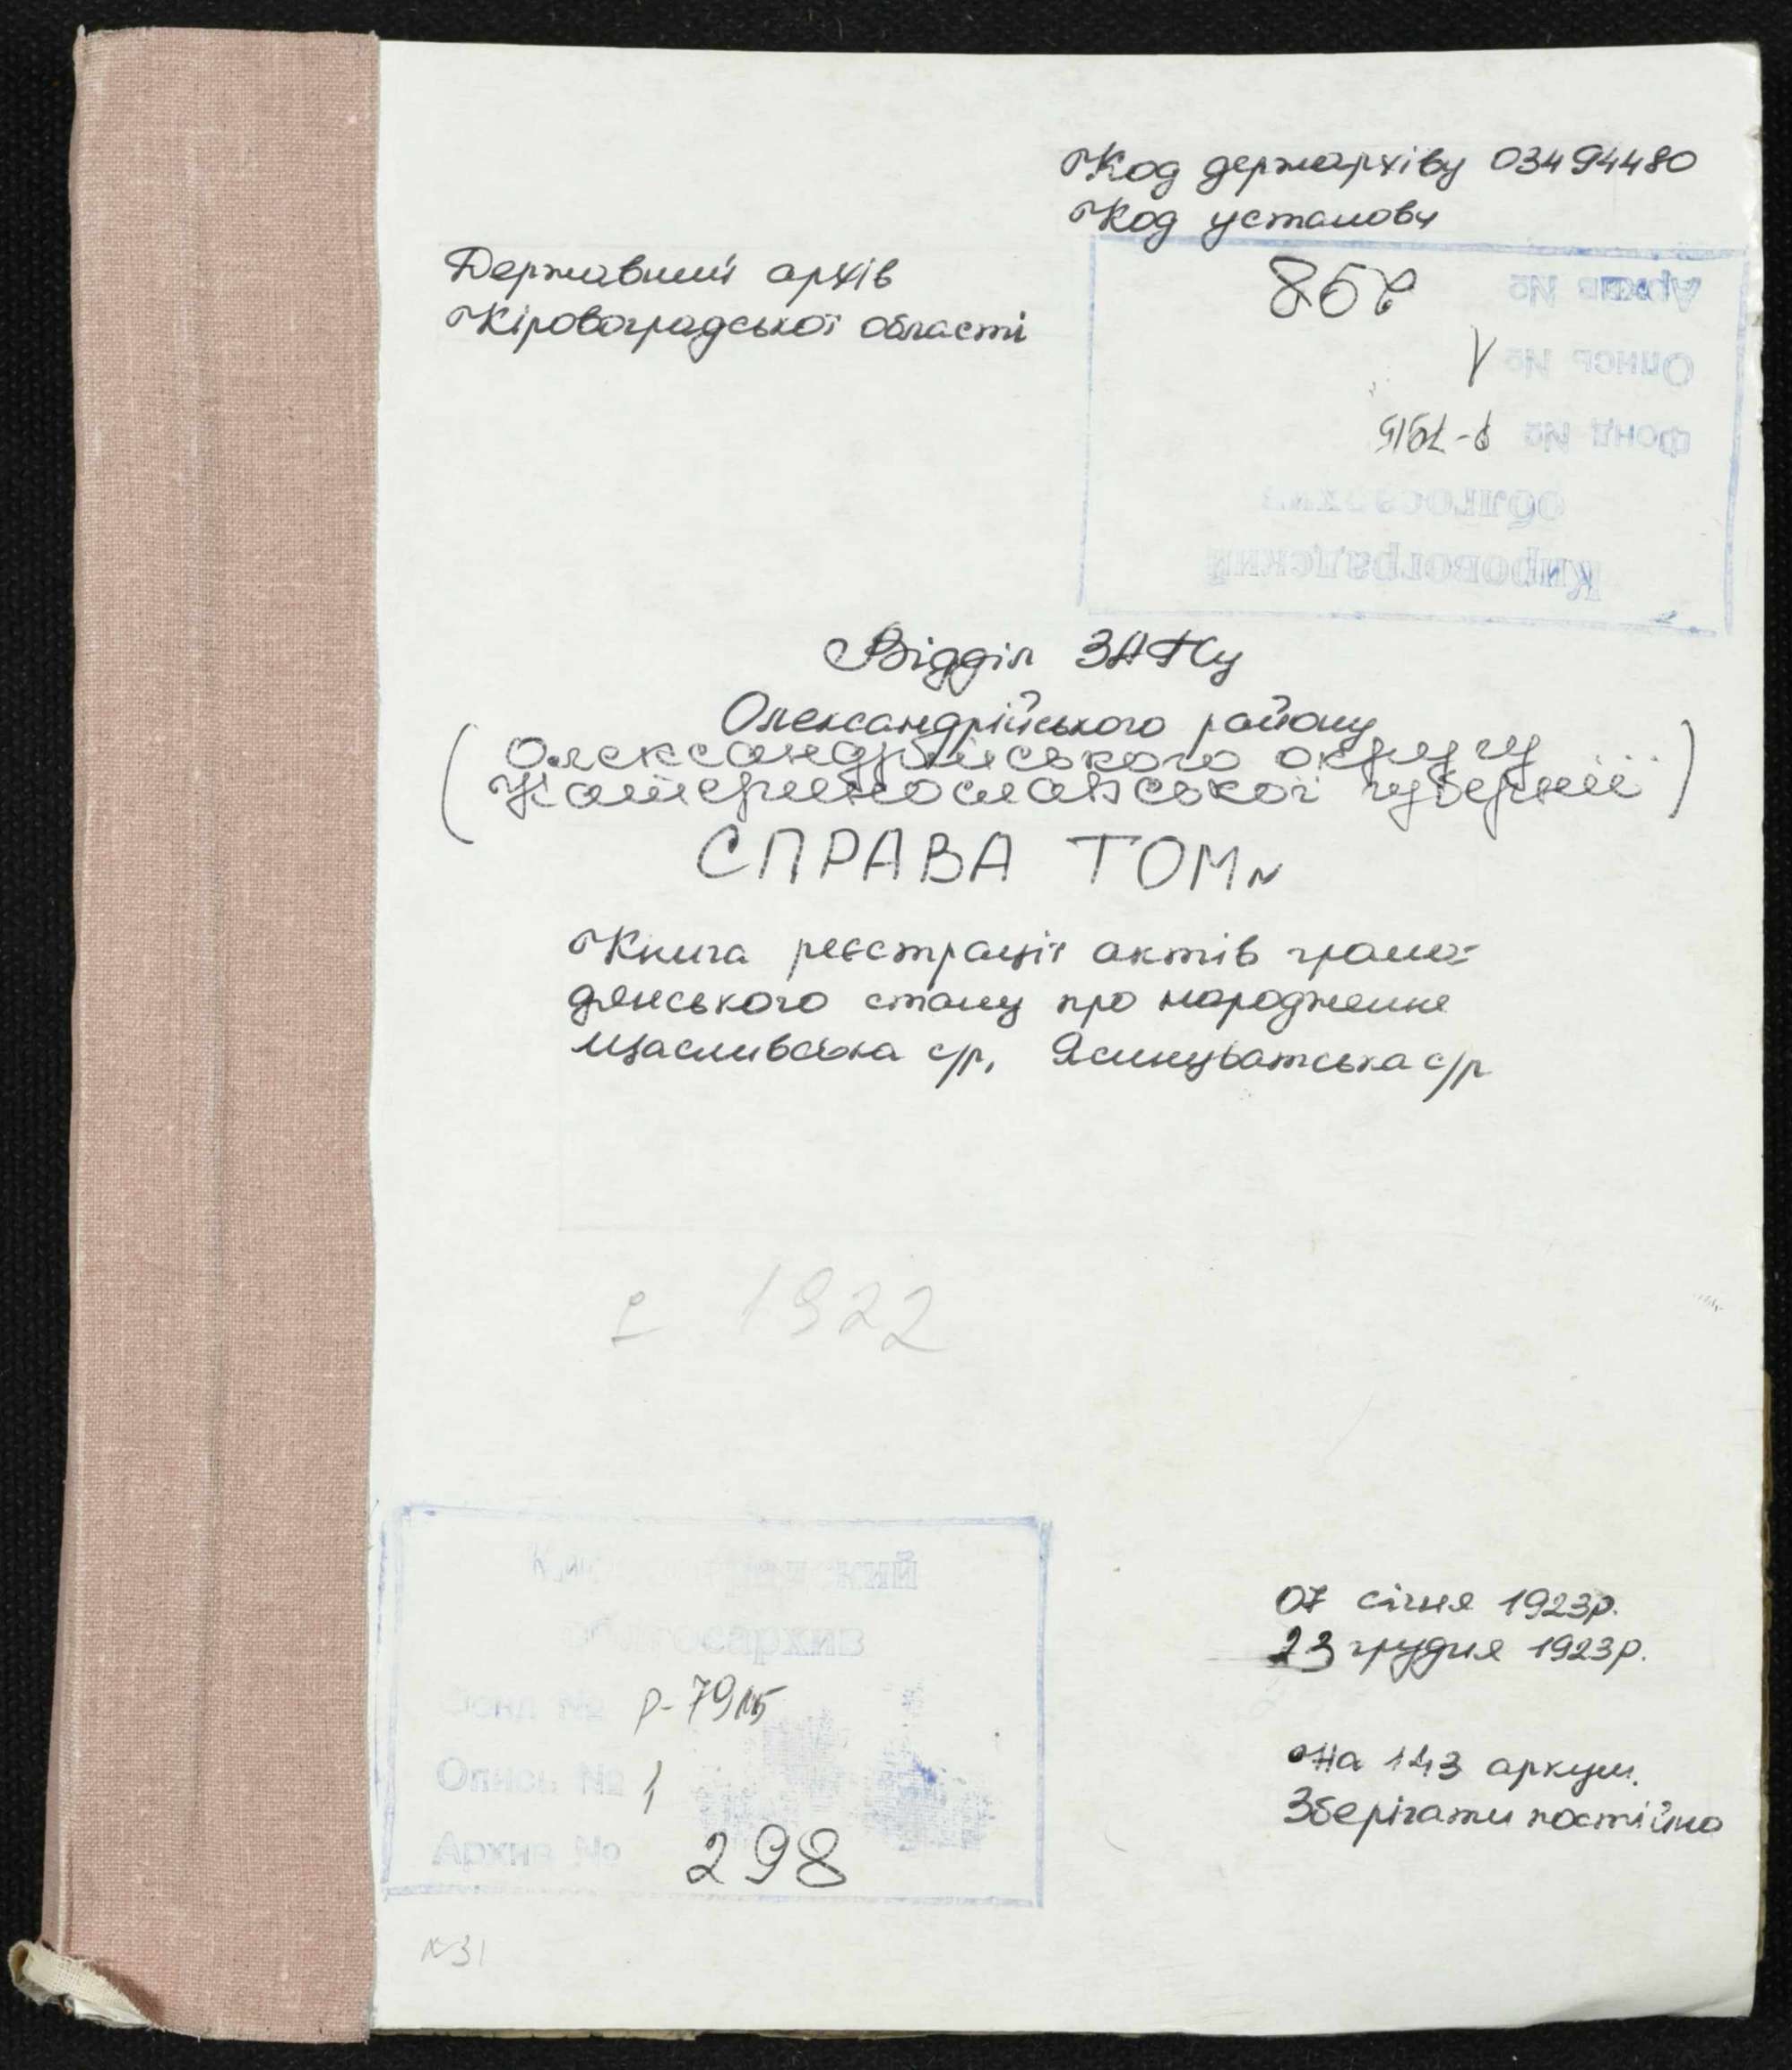 Код держархіву 03494480
Код установи
Державний архів
Кіровоградської області
298
Архив №
1
Опись №
Фонд № Р-7915
облгосархив
Кировоградский
Відділ ЗАГСу
Олександрійського району
(Олександрійського округу
Катеринославської губернії)
СПРАВА ТОМ N
Книга реєстрації актів грома-
дянського стану про народження
Щасливська с/р, Ясинуватська с/р
1922
07 січня 1923р.
23 грудня 1923р.
На 143 аркуш.
Зберігати постійно
облгосархив
Фонд № Р-7915
Опись № 1
Архив № 298
N31